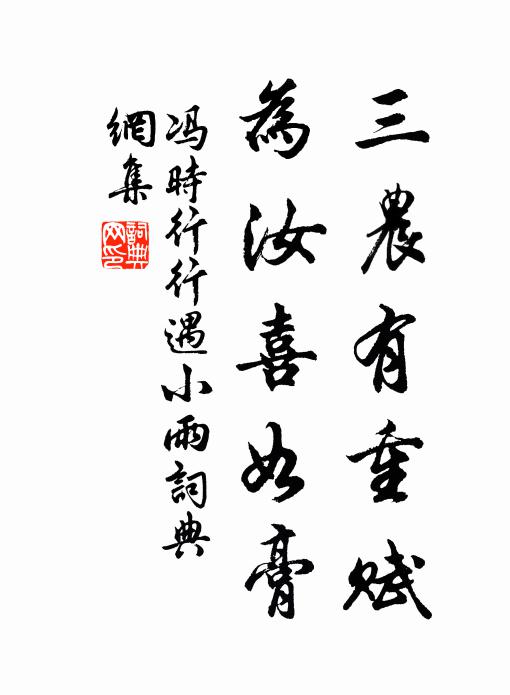 三農有重賦
為汝喜如膏
冯時行行遇小雨詞典
網集
詞典
网印